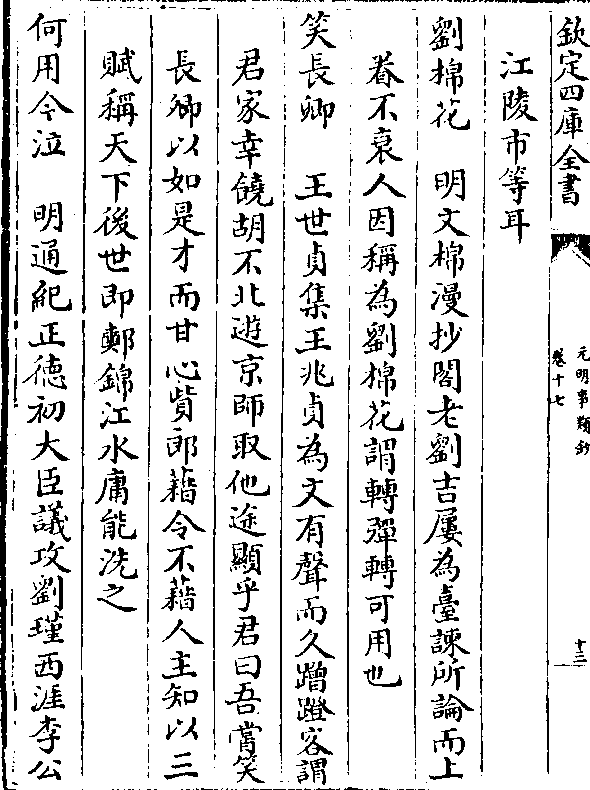 欽定四庫全書
元明事類鈔
卷十七
十三
江陵市等耳
劉棉花　明文棉漫抄閣老劉吉屢為臺諫所論而上
眷不衰人因稱為劉棉花謂轉彈轉可用也
笑長卿　王世貞集王兆貞為文有聲而久蹭蹬客謂
君家幸饒胡不北遊京師取他途顯乎君曰吾嘗笑
長卿以如是才而甘心貲郎藉令不藉人主知以三
賦稱天下後世即鄴錦江水庸能洗之
何用今泣　明通紀正德初大臣議攻劉瑾西涯李公